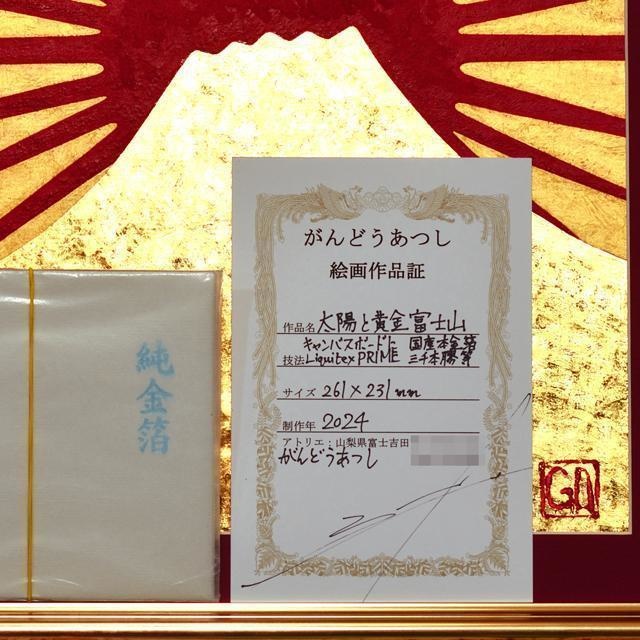 がんどうあつし
絵画作品証
作品名 太陽と黄金富士山
キャンバスボード 国産本金箔
技法 Liquitex PRIME 三千本膠
サイズ 261×231mm
制作年 2024
アトリエ：山梨県富士吉田
がんどうあつし
純金箔
GA